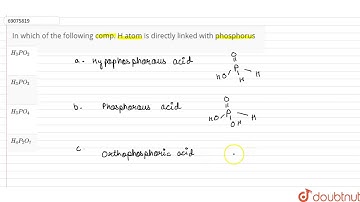 63075819
In which of the following comp. H atom is directly linked with phosphorus
H3PO2
H3PO3
H3PO4
H4P2O7
a. Hypophosphorous acid
O
P
HO H H
b. Phosphorous acid
O
P
HO OH H
c. Orthophosphoric acid
doubtnut